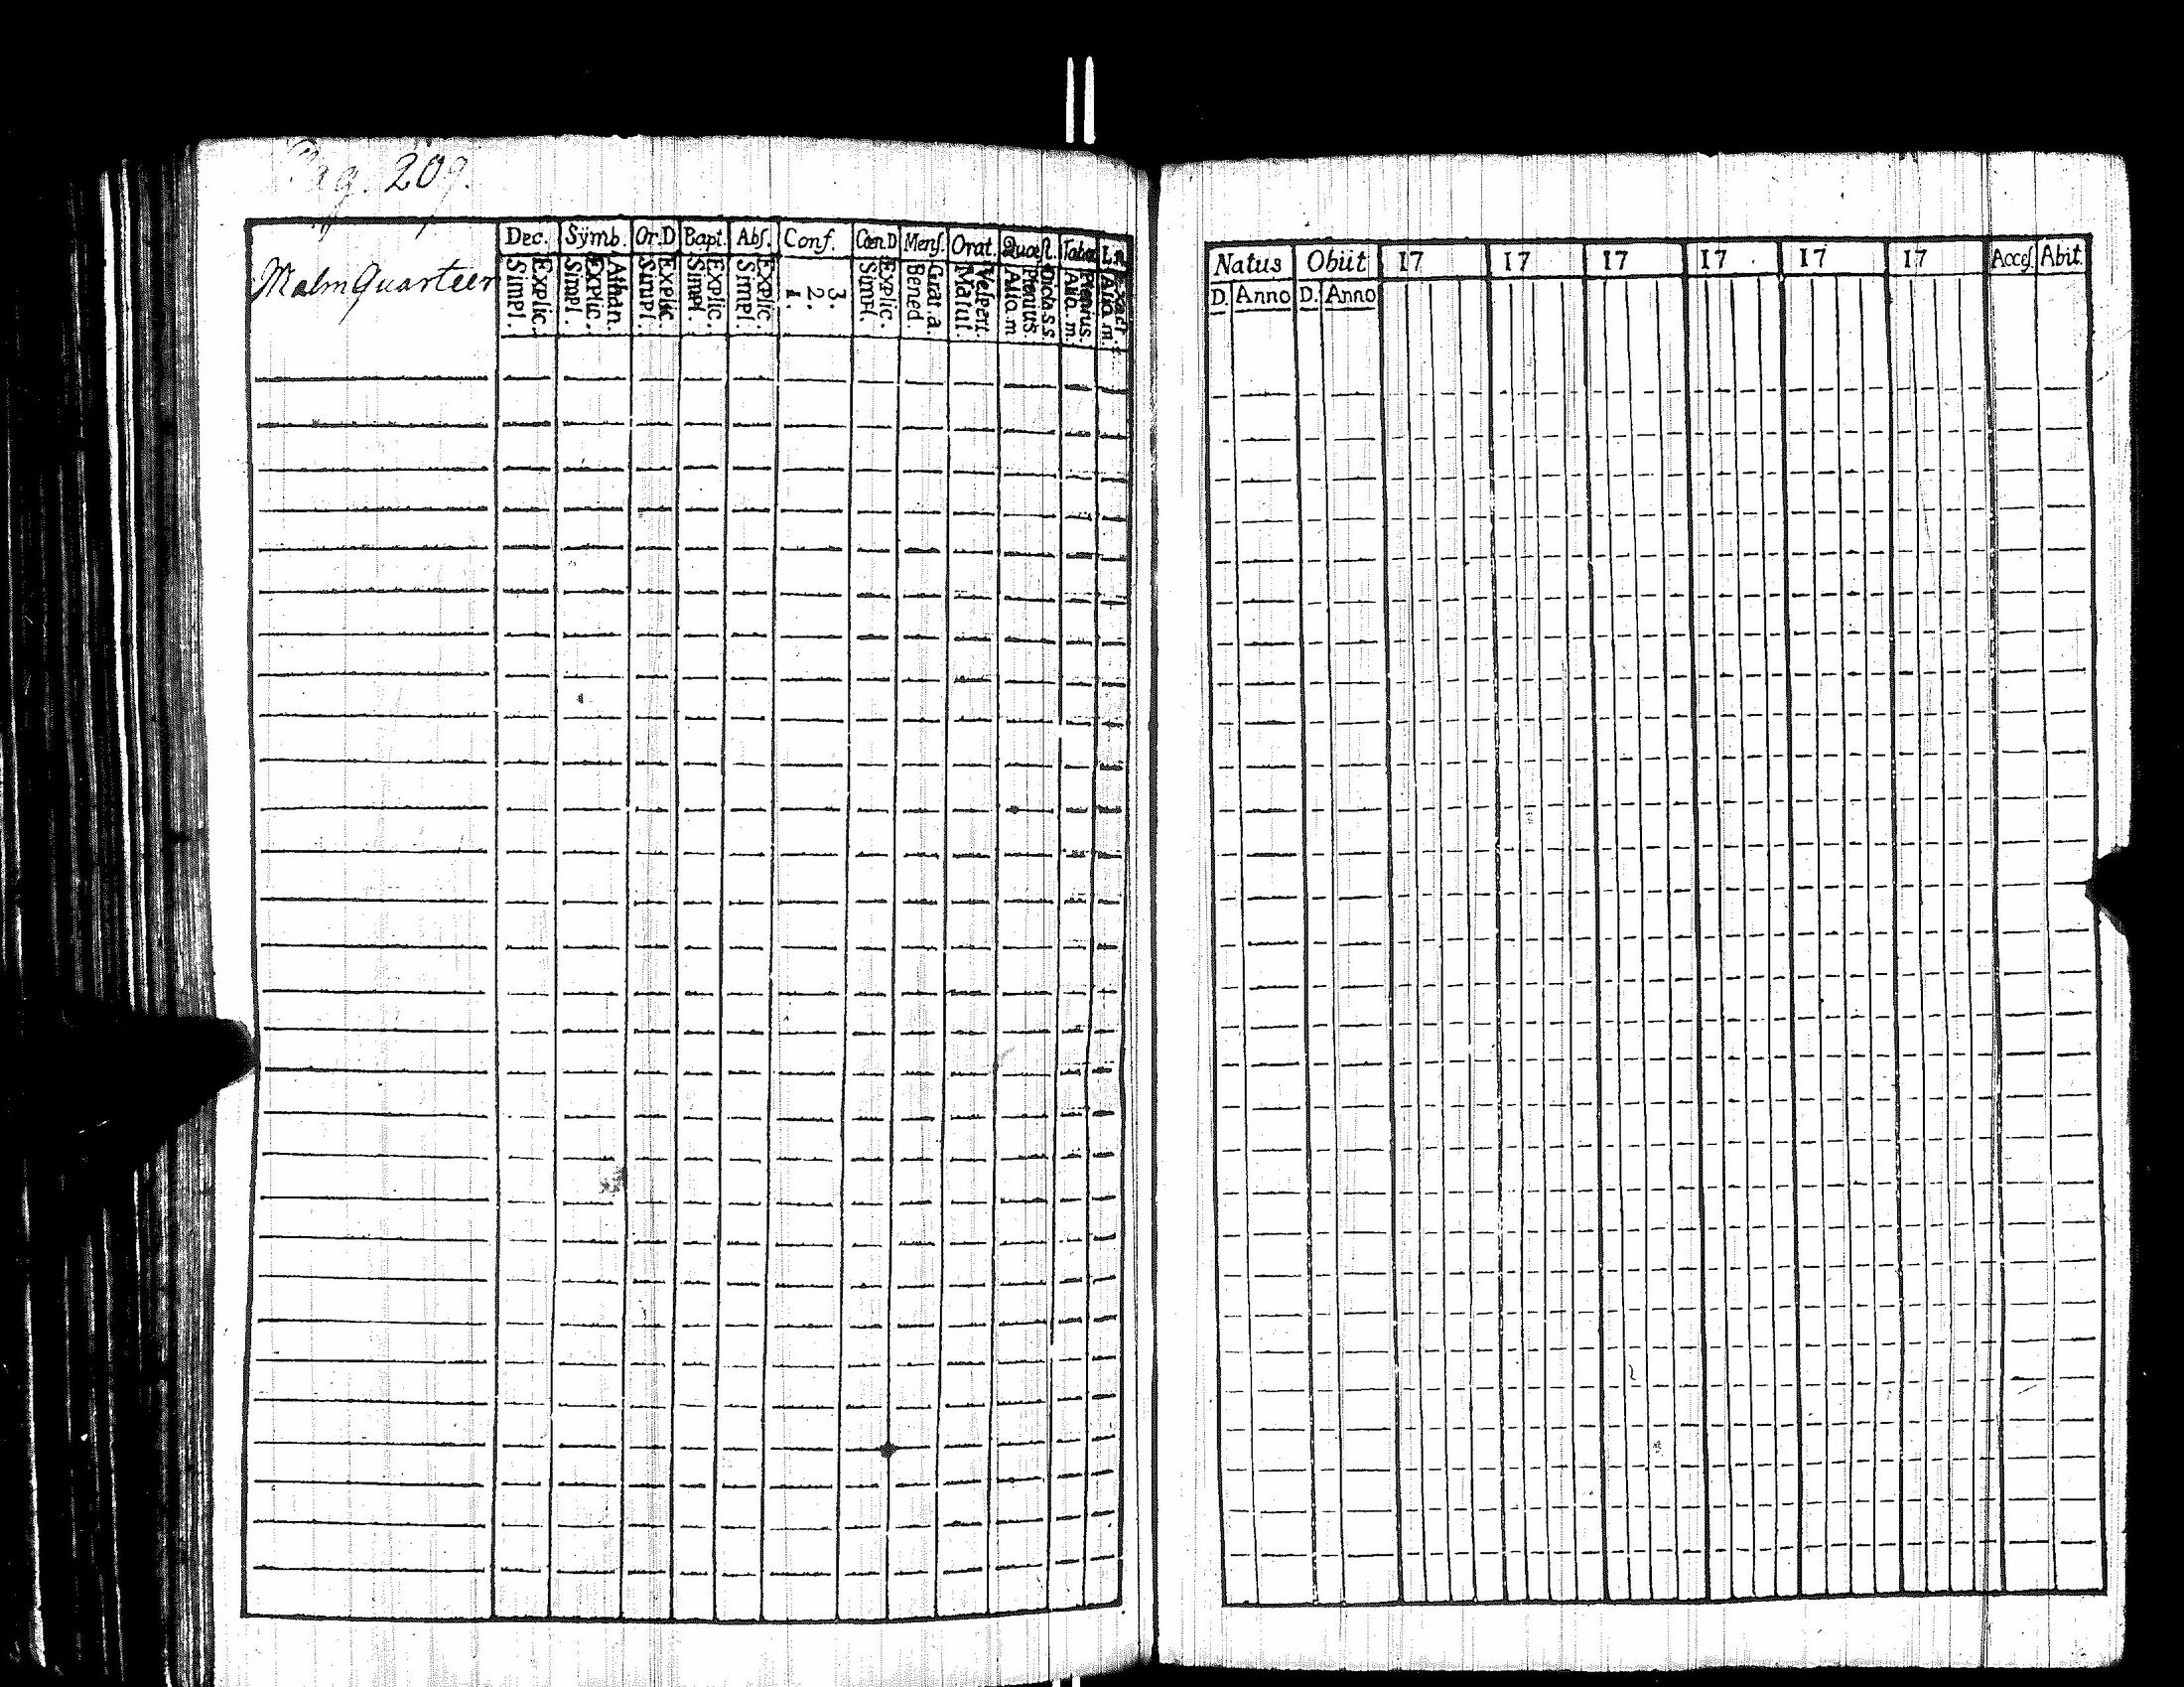 Pag. 209.
Malm Quarteer
Dec. Sÿmb. Or.D Bapt. Abſ. Conf. Cœn.D Menſ. Orat. Quæſt.
Explic. Simpl.
Athan. Explic. Simpl.
Explic. Simpl.
Explic. Simpl.
Explic. Simpl.
3. 2. 1.
Explic. Simpl.
Grat.a. Bened.
Veſpert. Matut.
Dicta.s.s. Plenius. Alio.m
Plenius. Alio.m.
Alio.m
Natus Obiit 17 17 17 17 17 17 Acceſ. Abit.
D. Anno D. Anno